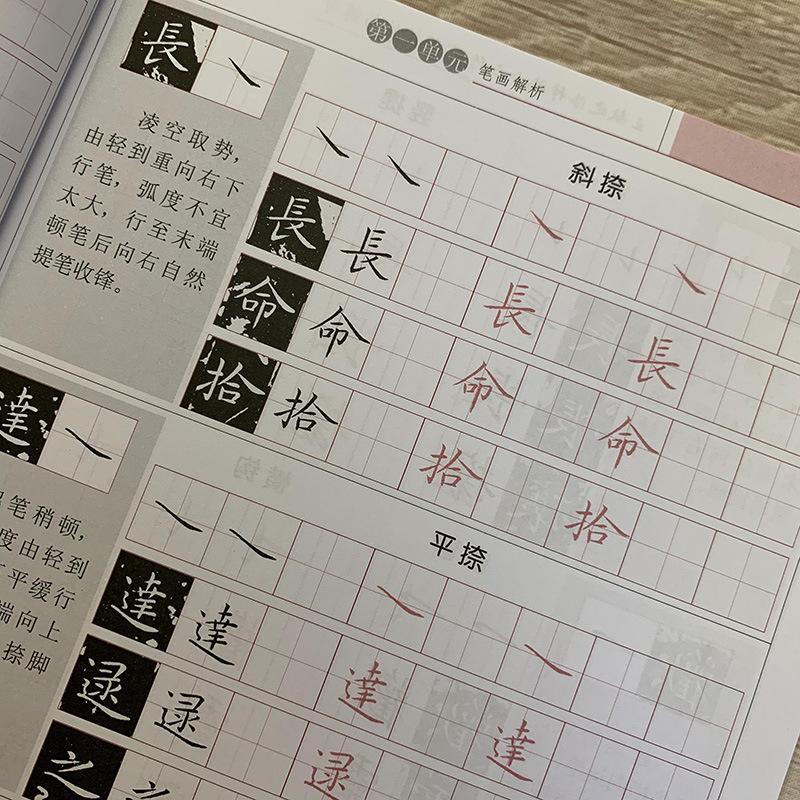 第一单元 笔画解析
長
凌空取势，
由轻到重向右下
行笔，弧度不宜
太大，行至末端
顿笔后向右自然
提笔收锋。
斜捺
長 長 長 長
命 命 命 命
拾 拾 拾 拾
達
笔稍顿，
度由轻到
平缓行
端向上
捺脚
平捺
達 達 達 達
逯 逯 逯
之 之